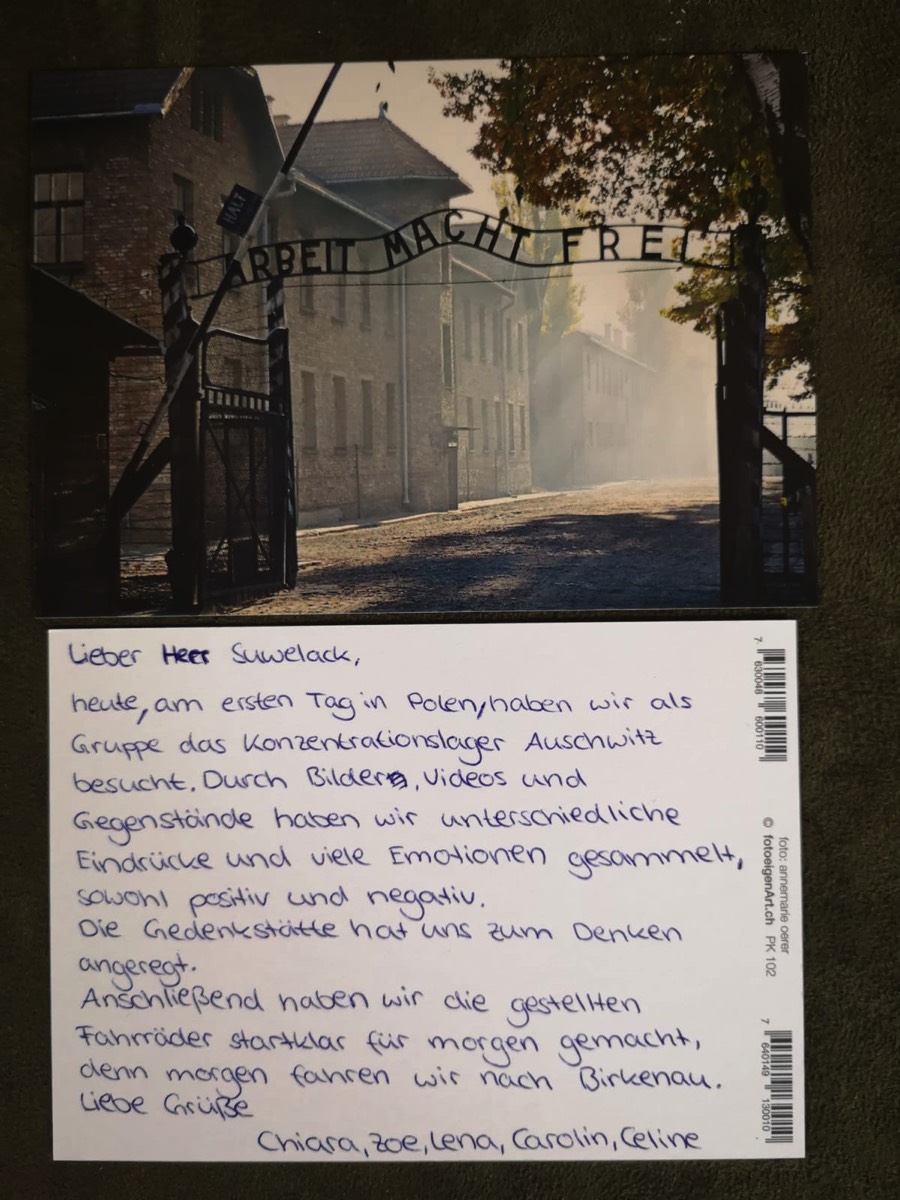 HALT
ARBEIT MACHT FREI
Lieber Herr Suwelack,
heute, am ersten Tag in Polen, haben wir als
Gruppe das Konzentrationslager Auschwitz
besucht. Durch Bilder, Videos und
Gegenstände haben wir unterschiedliche
Eindrücke und viele Emotionen gesammelt,
sowohl positiv und negativ.
Die Gedenkstätte hat uns zum Denken
angeregt.
Anschließend haben wir die gestellten
Fahrräder startklar für morgen gemacht,
denn morgen fahren wir nach Birkenau.
Liebe Grüße
Chiara, Zoe, Lena, Carolin, Celine
7 630048 600110
foto: annemarie oerer
© fotoeigenArt.ch PK 102
7 640149 130010